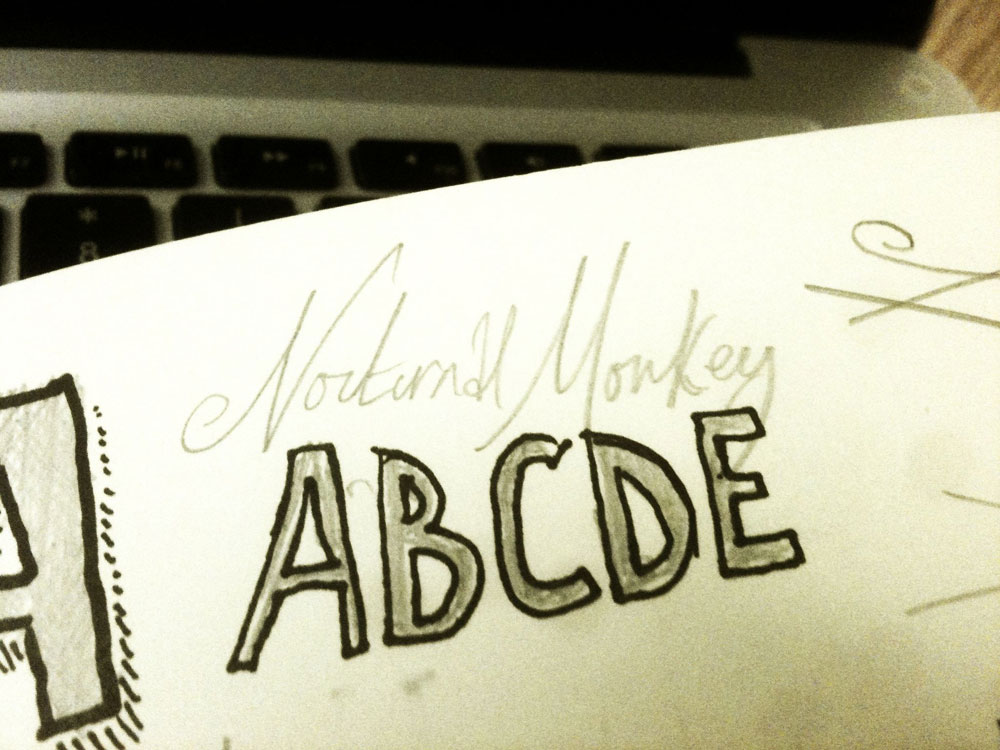 Nocturnal Monkey
ABCDE
A
8
*